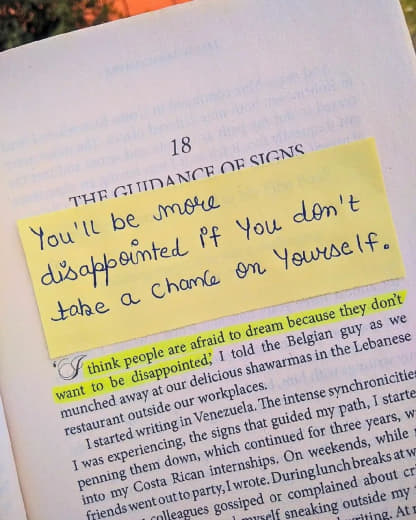 18
THE GUIDANCE OF SIGNS
You'll be more
disappointed if You don't
take a chance on Yourself.
'I think people are afraid to dream because they don't
want to be disappointed,' I told the Belgian guy as we
munched away at our delicious shawarmas in the Lebanese
restaurant outside our workplaces.
I started writing in Venezuela. The intense synchronicities
I was experiencing, the signs that guided my path, I starte
penning them down, which continued for three years, w
into my Costa Rican internships. On weekends, while
friends went out to party, I wrote. During lunch breaks at w
colleagues gossiped or complained about cr
myself sneaking outside my
writing. At